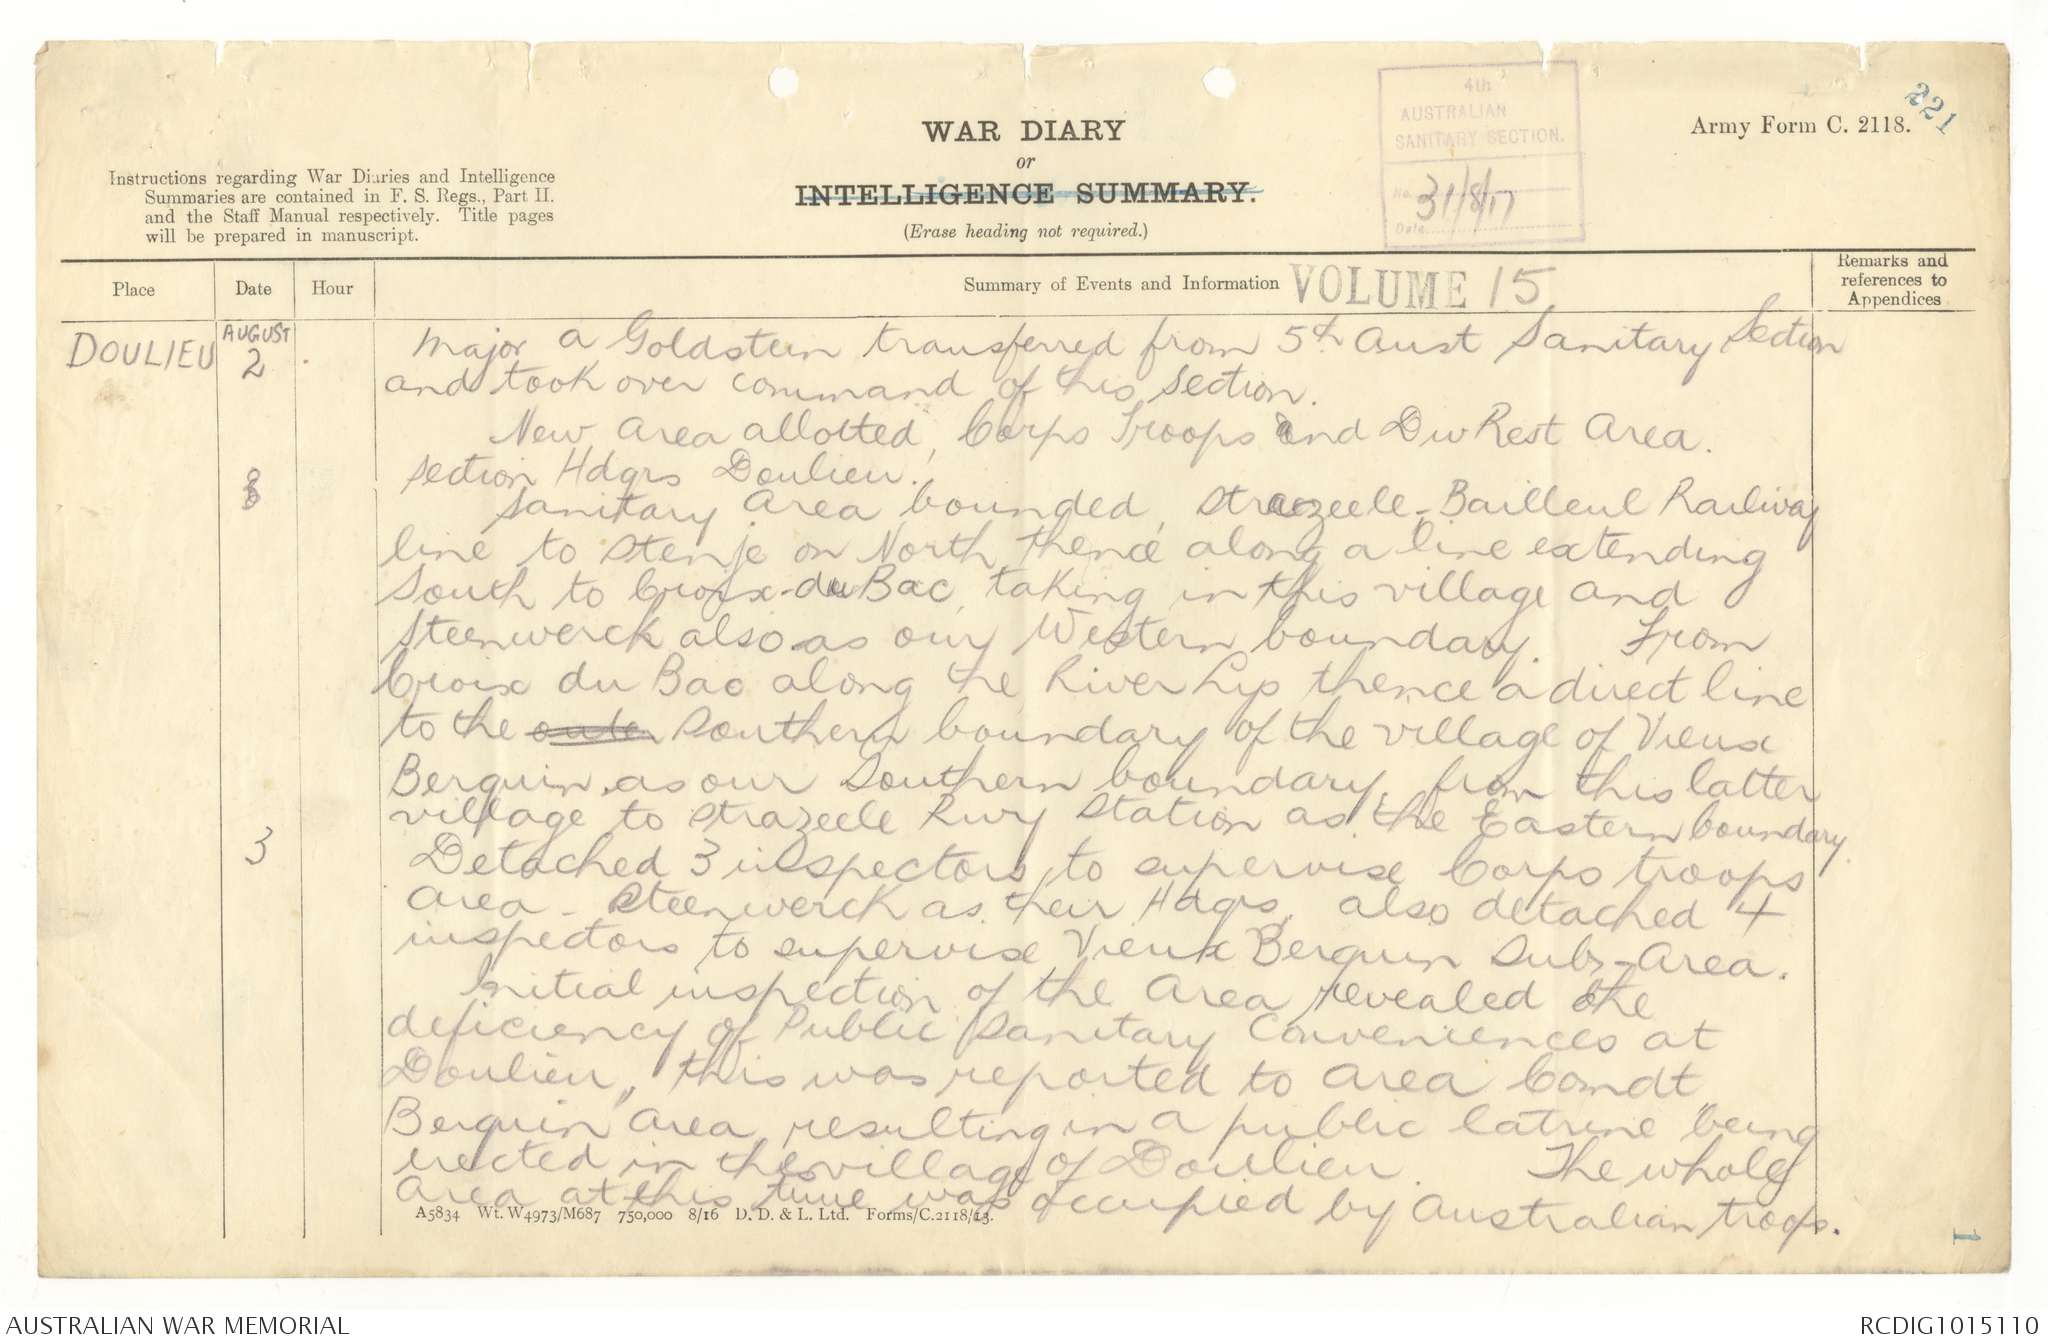 221
Army Form C. 2118.
4th
AUSTRALIAN
SANITARY SECTION.
No.
31/8/17
Date
WAR DIARY
or
INTELLIGENCE SUMMARY.
(Erase heading not required.)
Instructions regarding War Diaries and Intelligence
Summaries are contained in F. S. Regs., Part II.
and the Staff Manual respectively. Title pages
will be prepared in manuscript.
Place
Date
Hour
Summary of Events and Information
VOLUME 15
Remarks and
references to
Appendices
DOULIEU
AUGUST
2
Major A Goldstein transferred from 5th Aust Sanitary Section
and took over command of this section.
New Area allotted, Corps Troops and Div Rest Area.
Section Hdqrs Doulieu.
Sanitary Area bounded, Strazeele-Bailleul Railway
line to Stenje on North, thence along a line extending
South to Croix-du Bac, taking in this village and
Steenwerck also as our Western boundary. From
Croix du Bac along the River Lys thence a direct line
to the Southern boundary of the village of Vieux
Berquin as our Southern boundary, from this latter
village to Strazeele Rwy Station as the Eastern boundary.
3
Detached 3 inspectors to supervise Corps troops
area - Steenwerck as their Hdqrs, also detached 4
inspectors to supervise Vieux Berquin Sub-Area.
Initial inspection of the Area revealed the
deficiency of Public Sanitary Conveniences at
Doulieu, this was reported to Area Comdt
Berquin Area, resulting in a public latrine being
erected in the village of Doulieu. The whole
area at this time was occupied by Australian troops.
A5834 Wt. W4973/M687 750,000 8/16 D. D. & L. Ltd. Forms/C.2118/13.
1
AUSTRALIAN WAR MEMORIAL
RCDIG1015110